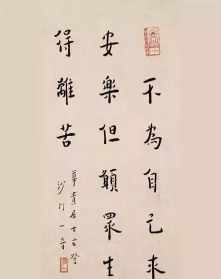 不為自己求
安樂但願眾生
得離苦
居士
沙門一音